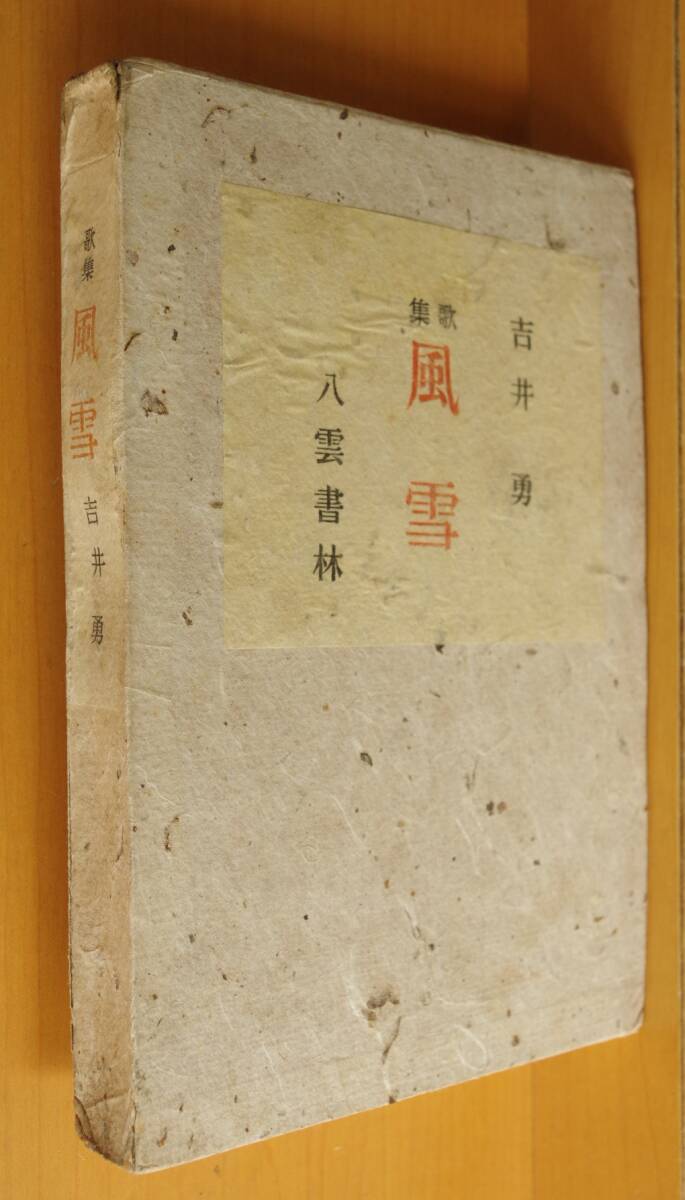 吉井勇
歌集
風雪
八雲書林
歌集
風雪
吉井勇